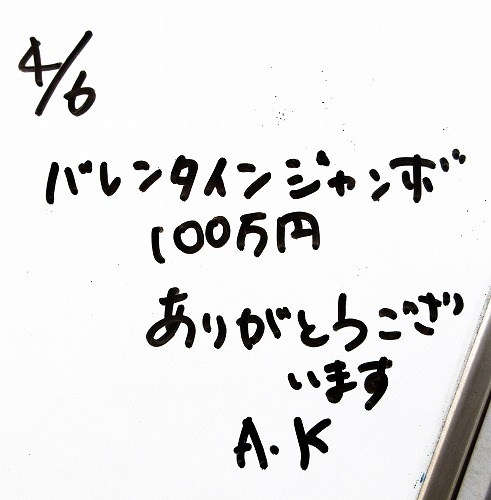 4/6
バレンタインジャンボ
100万円
ありがとうござい
います
A.K